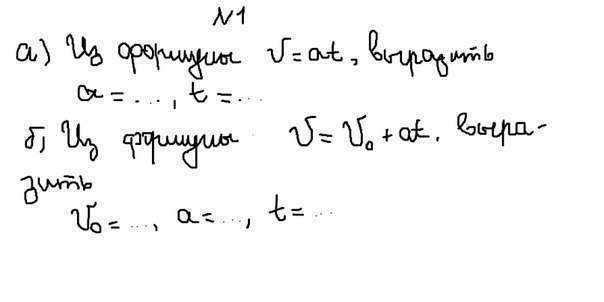 №1
а) Из формулы v=at, выразить
a=..., t=...
б) Из формулы v=v₀+at. выра-
зить
v₀=..., a=..., t=...